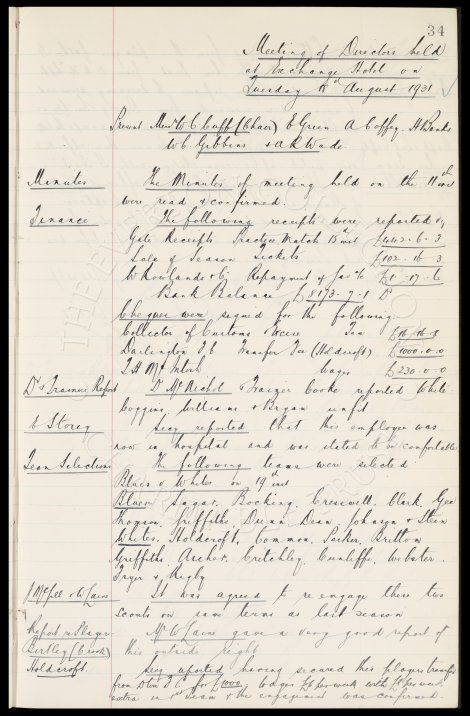 34
Meeting of Directors held
at Exchange Hotel on
Tuesday 18th August 1931
Present Messrs W C Cuff (Chair) E Green A Coffey. H Banks
W C. Gibbins & A R Wade.
Minutes The Minutes of meeting held on the 11th inst
were read & confirmed.
Finance The following receipts were reported
Gate Receipts Practice Match 15th inst £442-6-3
Sale of Season Tickets £102-16-3
W Rowlands & Co. Repayment of £1-17-6
Bank Balance £8173-7-1 Dr
Cheques were signed for the following
Collector of Customs & Excise Tax £716-16-8
Darlington F C Transfer Fee (Holdcroft) £1000-0-0
T H McIntosh Wages £230-0-0
Dr & Trainers Report Dr McNichol & Trainer Cooke reported White
Coggins, Williams & Bryan unfit
C Storey Secy reported that this employee was
now in hospital and was stated to be comfortable
Team Selections The following teams were selected
Blues v Whites on 19th inst
Blues Sagar, Bocking, Cresswell, Clark, Gee
Thomson, Griffiths, Dunn, Dean, Johnson & Stein
Whites. Holdcroft, Common, Parker, Britton
Griffiths, Archer, Critchley, Cunliffe, Webster.
Fryer & Rigby
J McFee & W Cains It was agreed to re engage these two
scouts on same terms as last season
Report re Player. Mr W Cains gave a very good report of
Birtley this outside right
Holdcroft. Secy reported having secured this players transfer
from D'ton F C for £1000. Wages per week with per week
extra in 1st team & the engagement was confirmed.